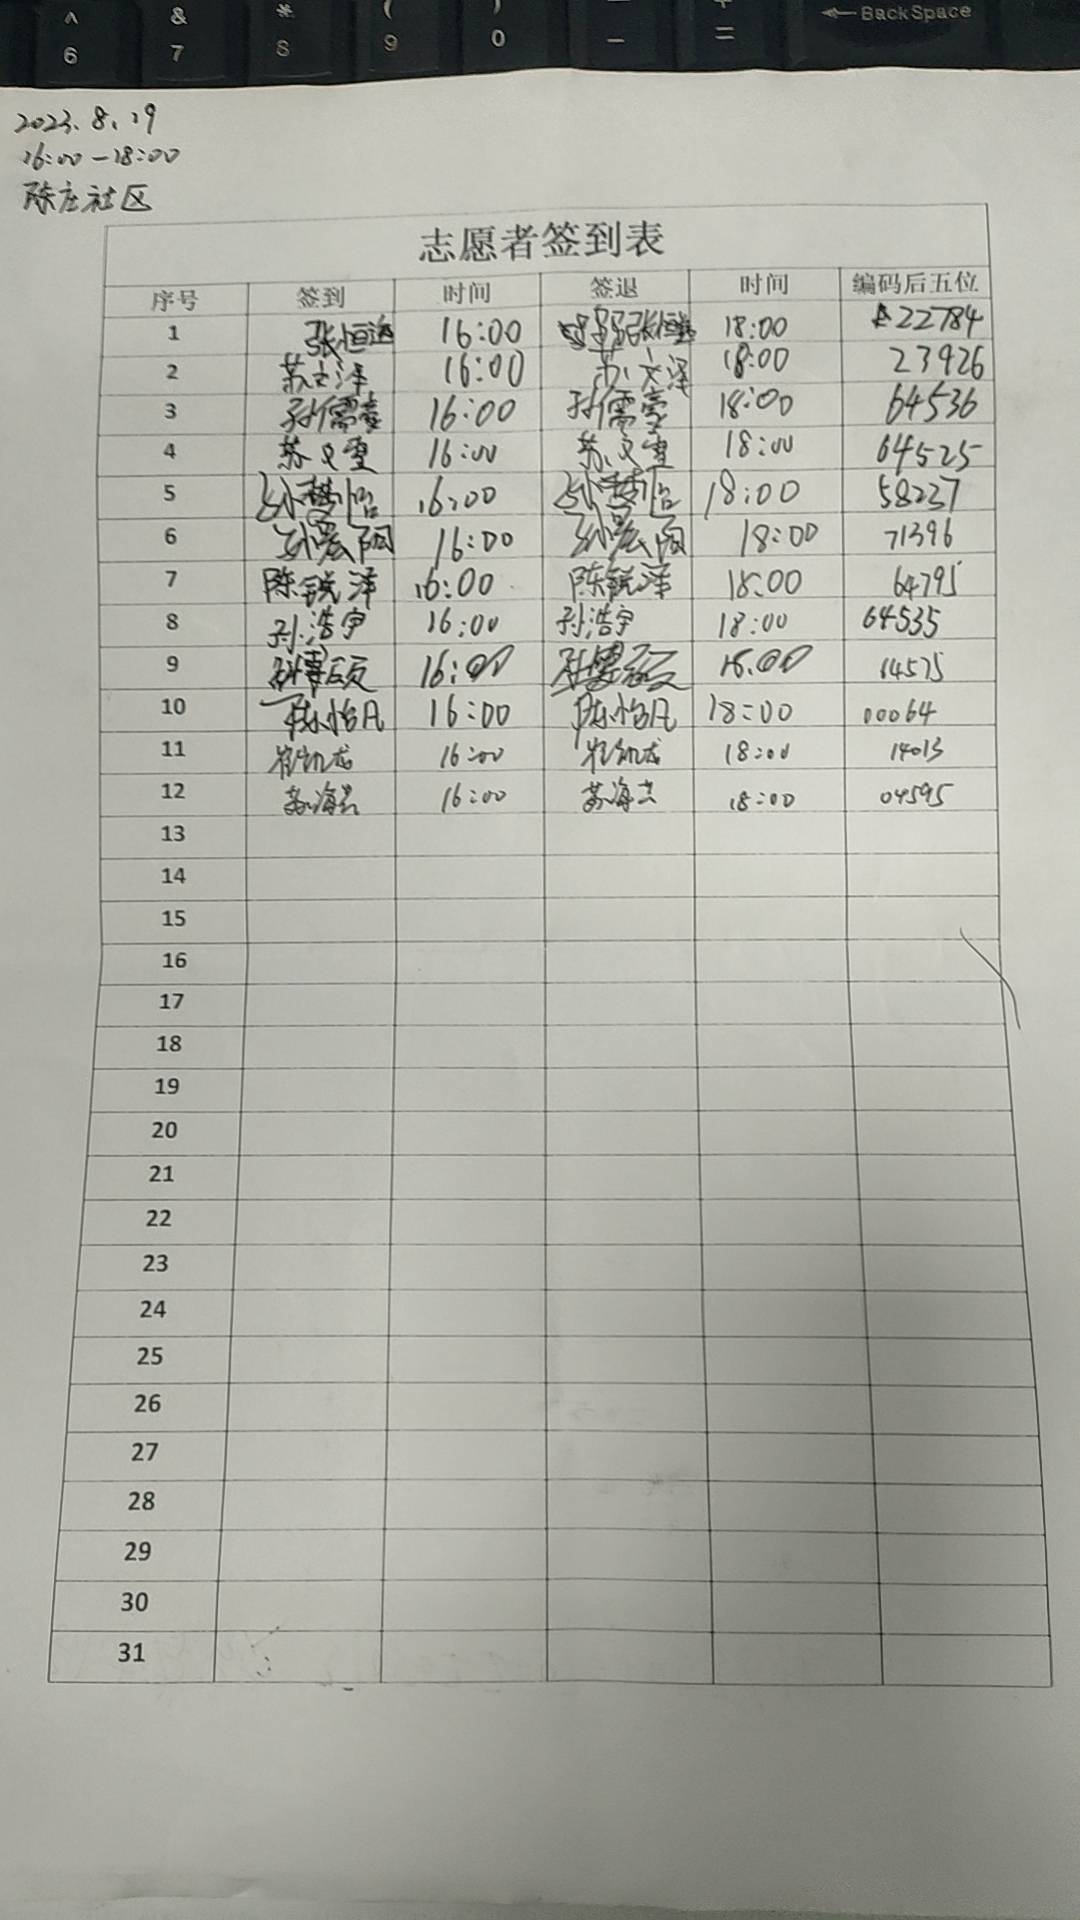 ^ & * ( ) — + ← BackSpace
6 7 8 9 0 – =
2023.8.19
16:00-18:00
陈庄社区
志愿者签到表
序号 签到 时间 签退 时间 编码后五位
1 张恒 16:00 张恒 18:00 22784
2 苏文泽 16:00 苏文泽 18:00 23926
3 孙儒豪 16:00 孙儒豪 18:00 64536
4 苏文雪 16:00 苏文雪 18:00 64525
5 孙梦怡 16:00 孙梦怡 18:00 58237
6 孙宸阳 16:00 孙宸阳 18:00 71396
7 陈锐泽 16:00 陈锐泽 18:00 64795
8 孙浩宇 16:00 孙浩宇 18:00 64535
9 16:00 18:00 14575
10 陈怡凡 16:00 陈怡凡 18:00 00064
11 崔凯龙 16:00 崔凯龙 18:00 14013
12 苏海 16:00 苏海 18:00 04595
13
14
15
16
17
18
19
20
21
22
23
24
25
26
27
28
29
30
31